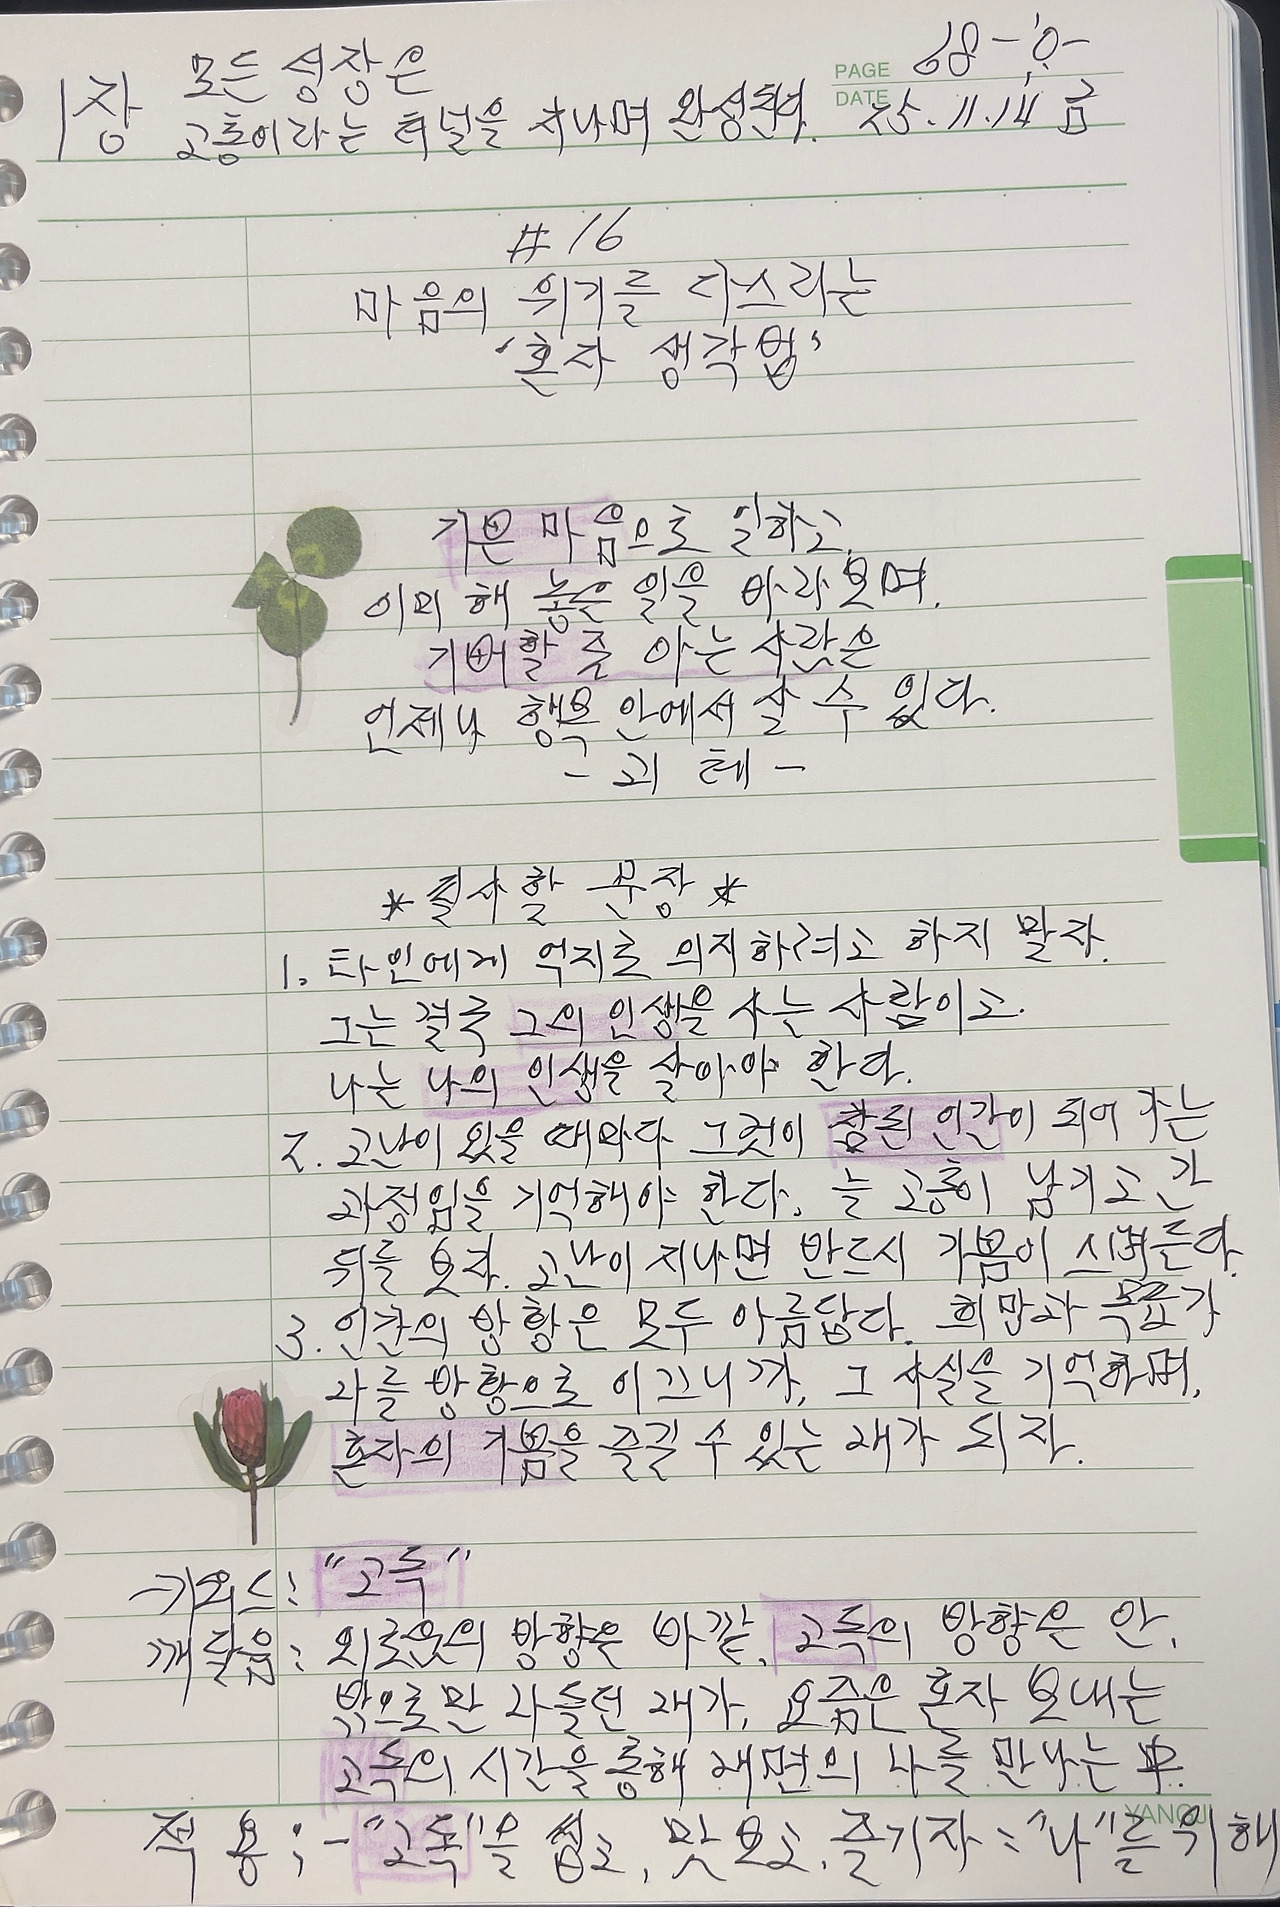 PAGE 68-
DATE 25.11.14 금
1장 모든 성장은
고통이라는 터널을 지나며 완성된다.
#16
마음의 위기를 다스리는
'혼자 생각법'
기쁜 마음으로 일하고,
이미 해 놓은 일을 바라보며,
기뻐할 줄 아는 사람은
언제나 행복 안에서 살 수 있다.
- 괴테 -
*필사할 문장*
1. 타인에게 억지로 의지하려고 하지 말자.
그는 결국 그의 인생을 사는 사람이고.
나는 나의 인생을 살아야 한다.
2. 고난이 있을 때마다 그것이 참된 인간이 되어 가는
과정임을 기억해야 한다. 늘 고통이 남기고 간
뒤를 보라. 고난이 지나면 반드시 기쁨이 스며든다.
3. 인간의 방황은 모두 아름답다. 희망과 목표가
나를 방황으로 이끄니까. 그 사실을 기억하며,
혼자의 기쁨을 즐길 수 있는 내가 되자.
키워드: "고독"
깨달음: 외로움의 방향은 바깥, 고독의 방향은 안.
밖으로만 나돌던 내가, 요즘은 혼자 보내는
고독의 시간을 통해 내면의 나를 만나는 中.
YANOJI
적용: -"고독"을 씹고, 맛보고, 즐기자 : "나"를 위해